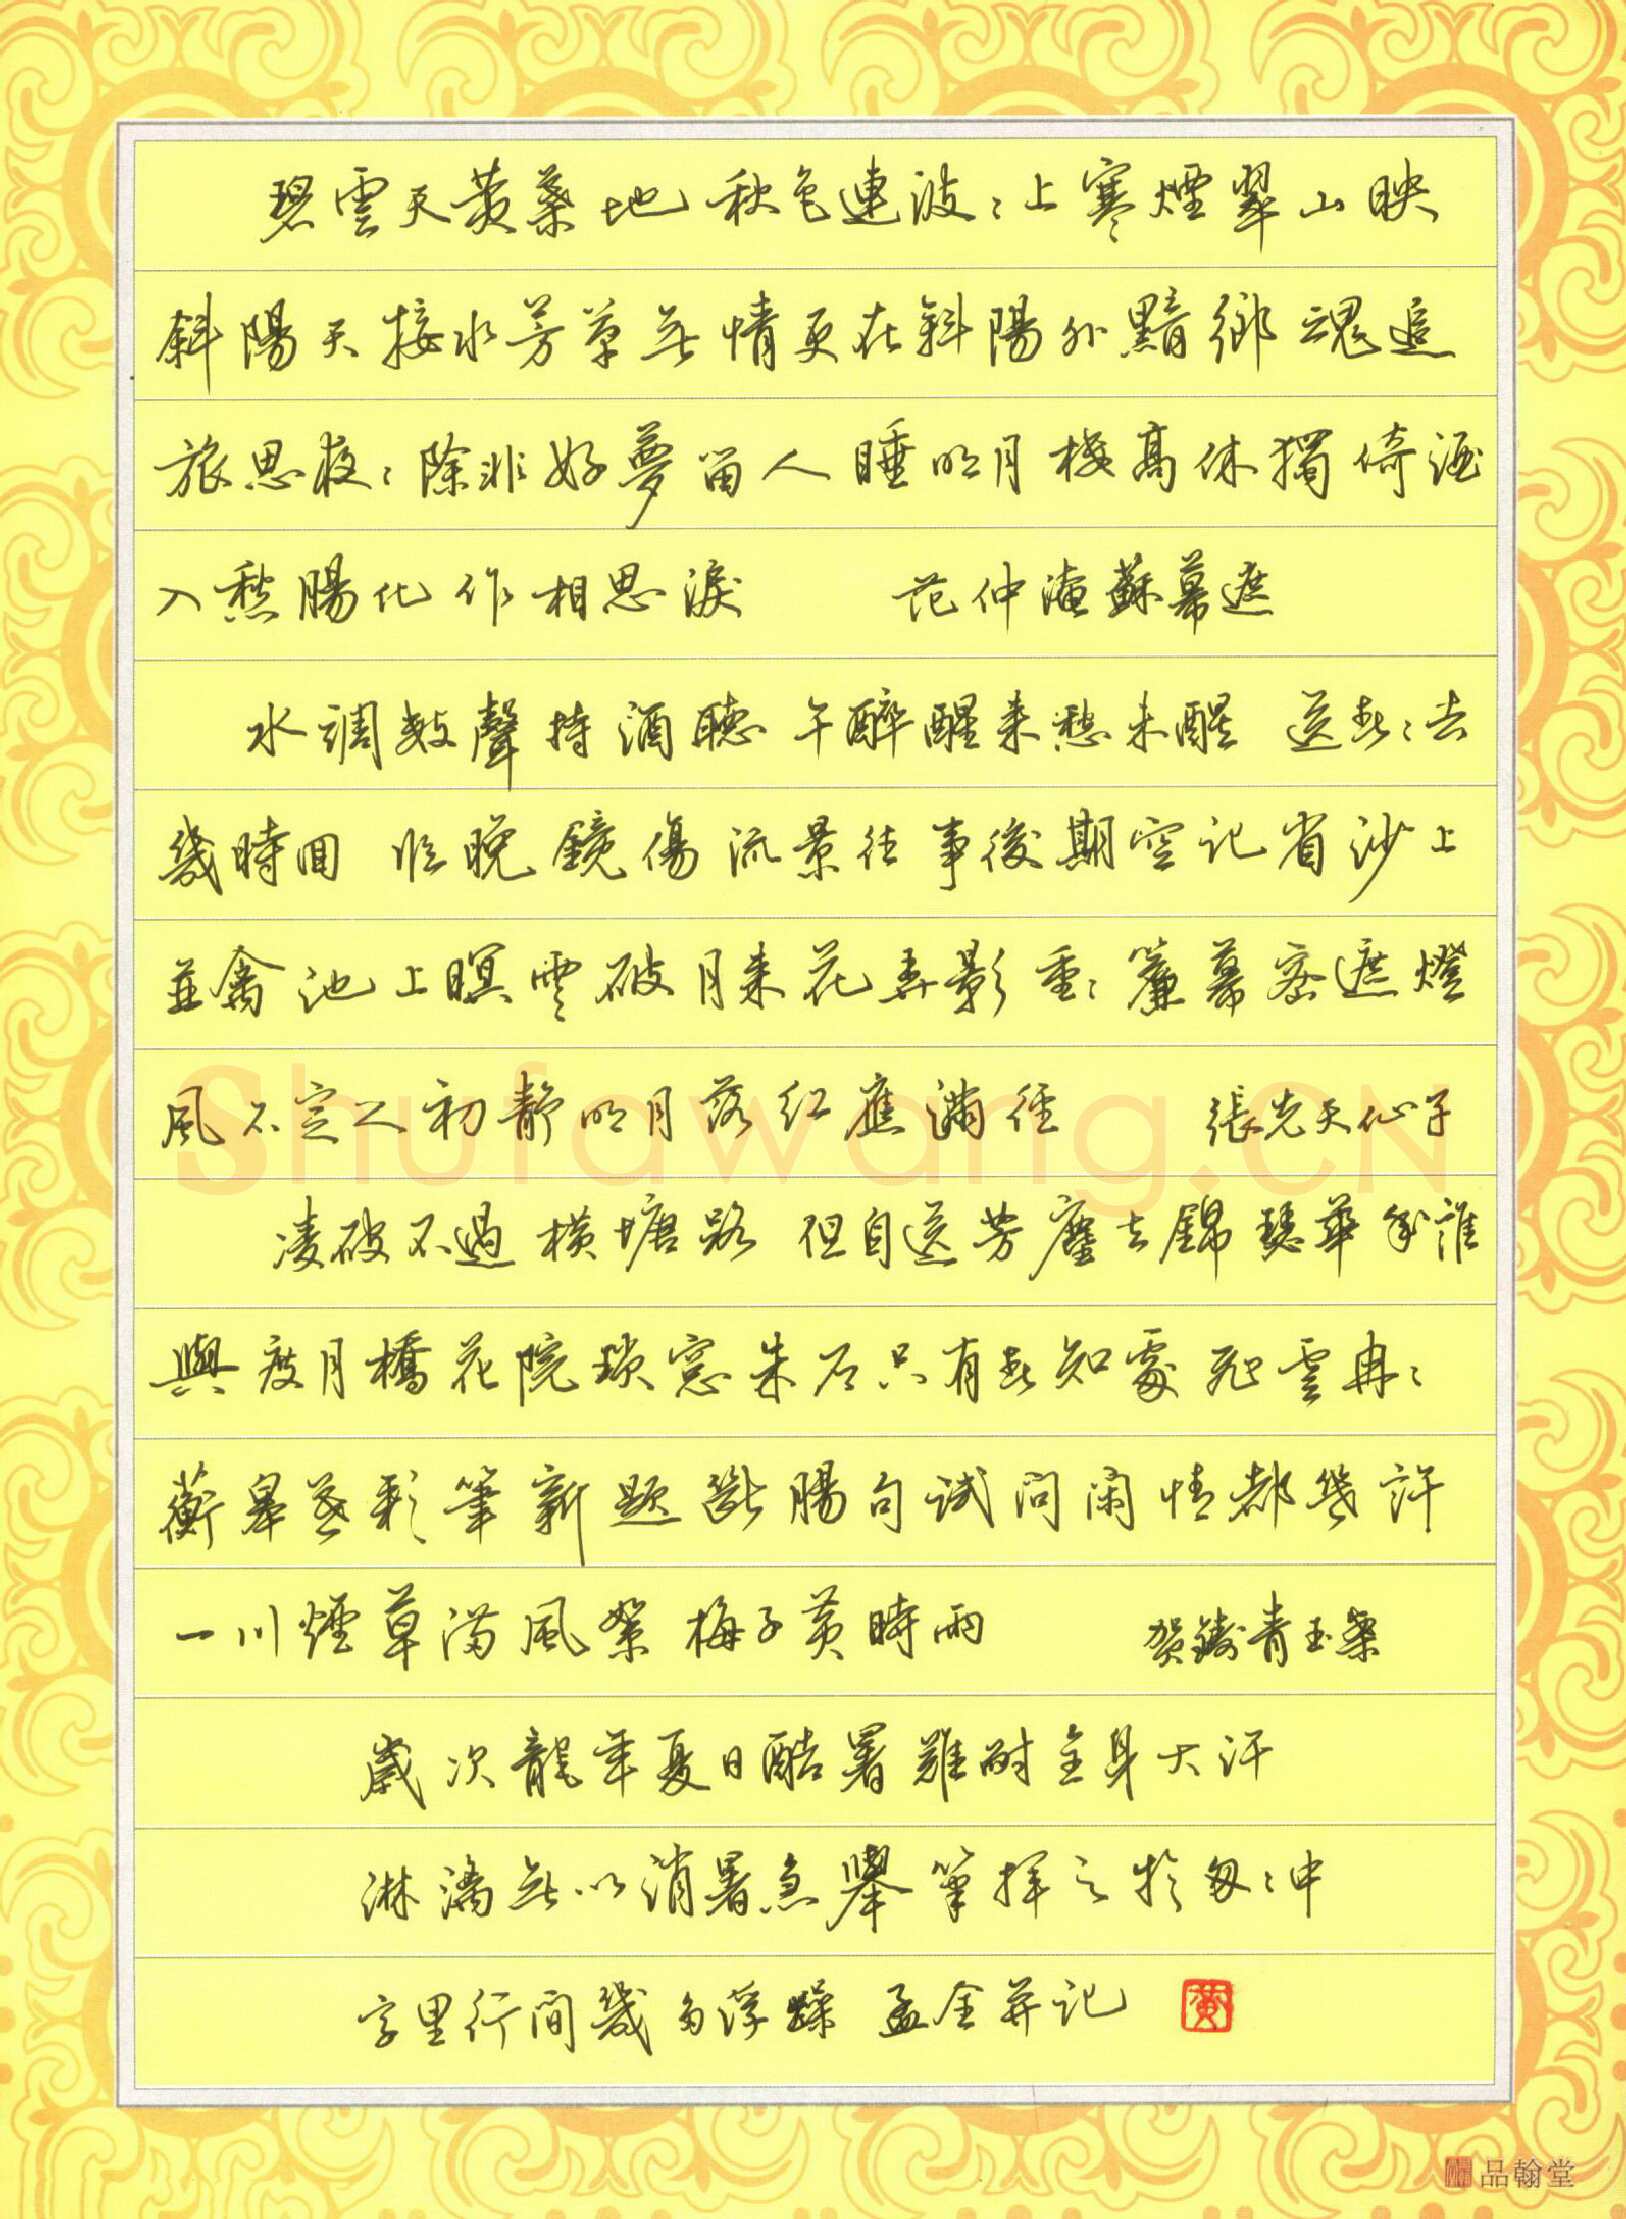 碧雲天黄葉地秋色連波々上寒煙翠山映
斜陽天接水芳草無情更在斜陽外黯鄉魂追
旅思夜々除非好夢留人睡明月樓高休獨倚酒
入愁腸化作相思淚 范仲淹蘇幕遮
水調數聲持酒聽午醉醒来愁未醒送春々去
幾時回临晚鏡傷流景往事後期空記省沙上
並禽池上暝雲破月来花弄影重々簾幕密遮燈
風不定人初静明月落红應滿徑 張先天仙子
凌波不過橫塘路但自送芳塵去錦瑟華年誰
與度月橋花院瑣窓朱户只有春知處飛雲冉々
蘅皋暮彩筆新題斷腸句试问闲情都幾許
一川煙草满風絮梅子黄時雨 贺鑄青玉案
歲次龍年夏日酷暑難耐全身大汗
淋漓無以消暑急舉筆揮之於匆々中
字里行間幾多浮躁 孟金并记
黄
Shufawang.CN
品翰堂